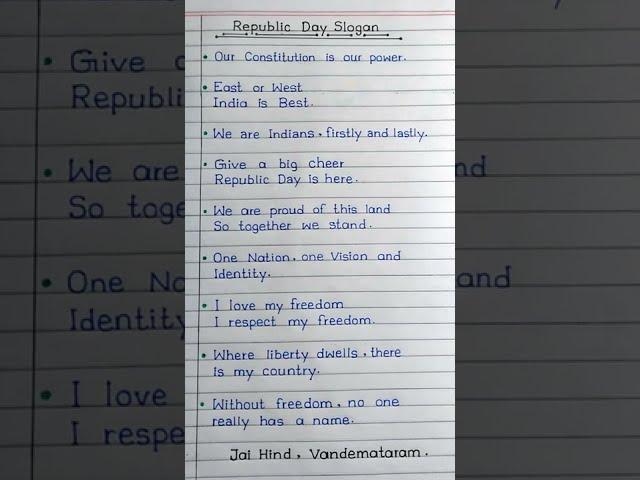 Republic Day Slogan
• Our Constitution is our power.
• East or West
India is Best.
• We are Indians, firstly and lastly.
• Give a big cheer
Republic Day is here.
• We are proud of this land
So together we stand.
• One Nation, one Vision and
Identity.
• I love my freedom
I respect my freedom.
• Where liberty dwells, there
is my country.
• Without freedom, no one
really has a name.
Jai Hind, Vandemataram.